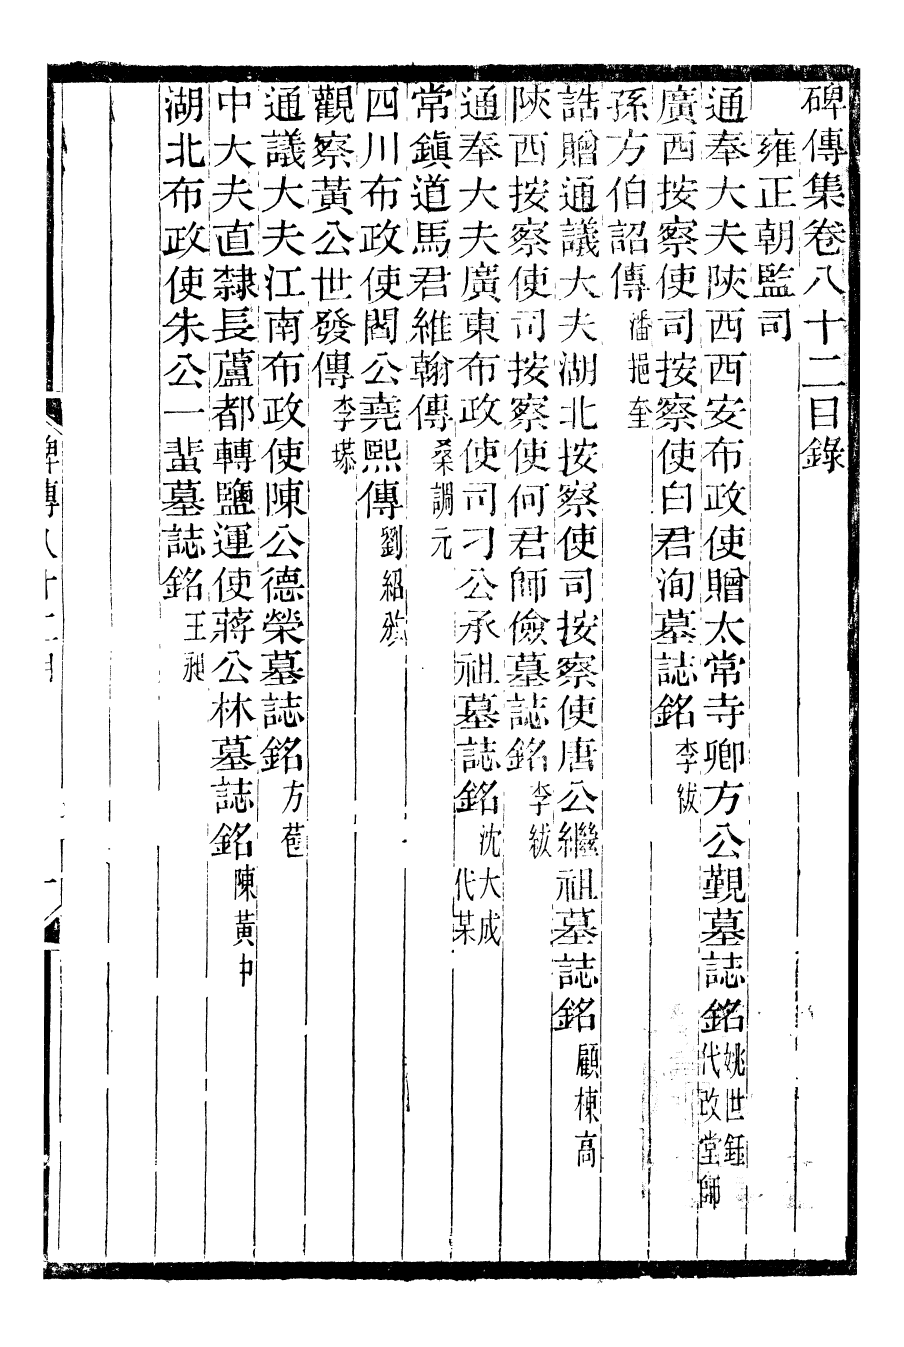 碑傳集卷八十二目錄
雍正朝監司
通奉大夫陝西西安布政使贈太常寺卿方公覲墓誌銘姚世鈺代改堂師
廣西按察使司按察使白君洵墓誌銘李紱
孫方伯詔傳潘挹奎
誥贈通議大夫湖北按察使司按察使唐公繼祖墓誌銘顧棟高
陝西按察使司按察使何君師儉墓誌銘李紱
通奉大夫廣東布政使司刁公承祖墓誌銘沈大成代某
常鎮道馬君維翰傳桑調元
四川布政使閻公堯熙傳劉紹攽
觀察黃公世發傳李塨
通議大夫江南布政使陳公德榮墓誌銘方苞
中大夫直隸長蘆都轉鹽運使蔣公林墓誌銘陳黃中
湖北布政使朱公一蜚墓誌銘王昶
碑傳八十二目 一